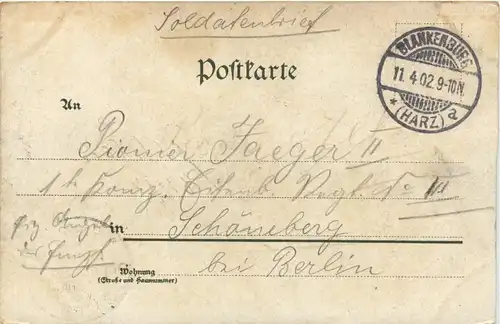 Soldatenbrief
Postkarte
BLANKENBURG
11.4.02.9-10N.
* (HARZ) a
An
Pionier Jaeger II
1te Komp. Eisenb. Regt. No III
in Schöneberg
bei Berlin
Wohnung
(Straße und Hausnummer)